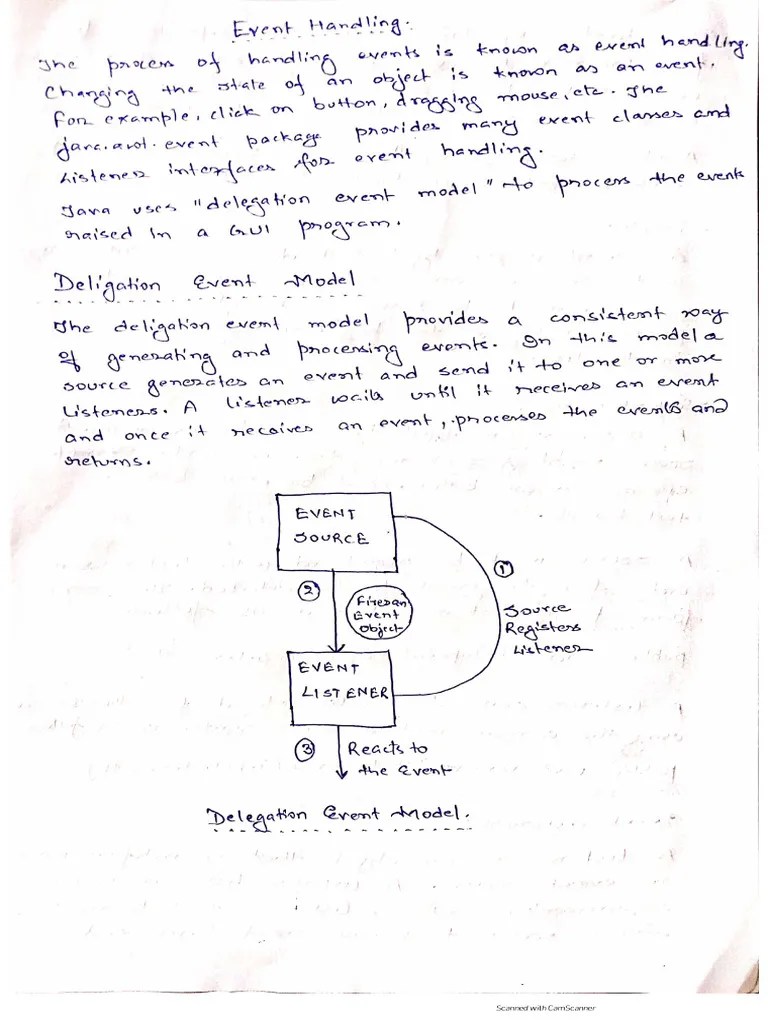 Event Handling.
The process of handling events is known as event handling.
Changing the state of an object is known as an event.
For example, click on button, dragging mouse, etc. The
java.awt.event package provides many event classes and
Listener interfaces for event handling.
Java uses "delegation event model" to process the events
raised in a GUI program.
Deligation Event Model
The deligation event model, provides a consistent way
of generating and processing events. In this model a
source generates an event and send it to one or more
Listeners. A listener waits until it receives an event
and once it receives an event, processes the events and
returns.
EVENT
SOURCE
①
②
Fires an
Event
Object
Source
Registers
Listener
EVENT
LISTENER
③ Reacts to
the Event
Delegation Event Model.
Scanned with CamScanner